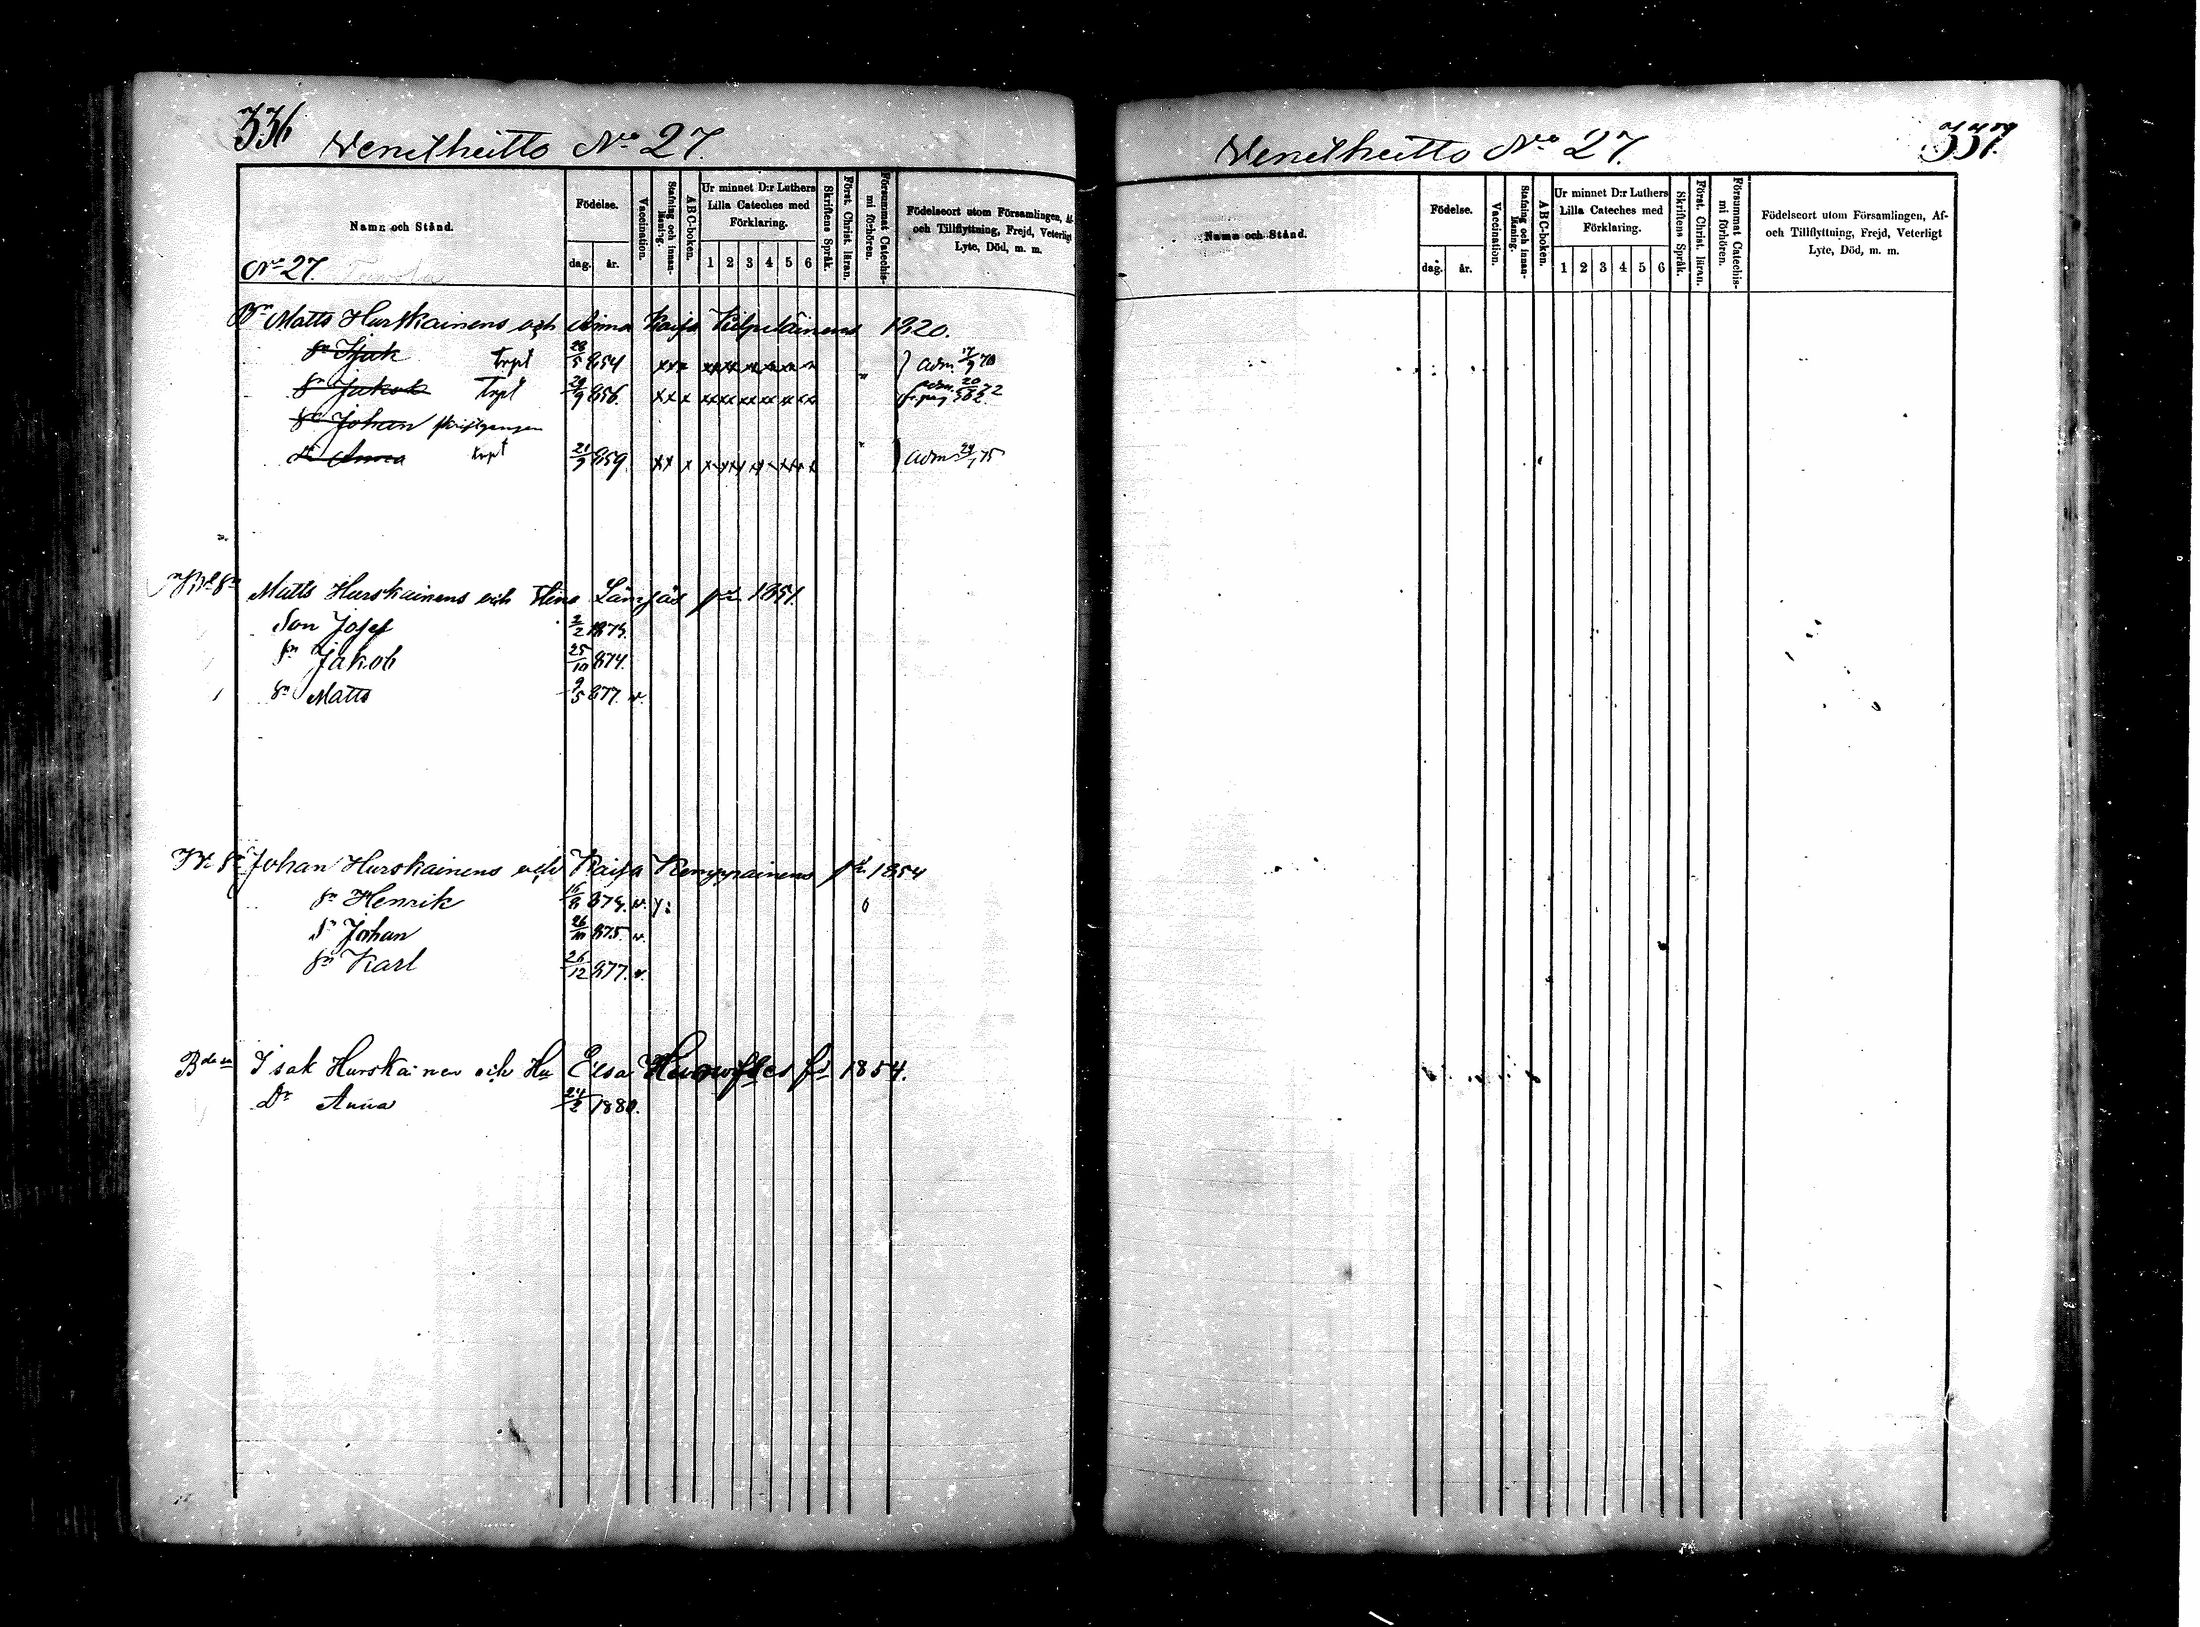 336
Venetheitto No 27.
Namn och Stånd.
Födelse.
dag.
år.
Vaccination.
Stafning och innan-läsning.
ABC-boken.
Ur minnet D:r Luthers
Lilla Cateches med
Förklaring.
1 2 3 4 5 6
Skriftens Språk.
Först. Christ. läran.
Försummat Catechis-
mi förhören.
Födelseort utom Församlingen, Af-
och Tillflyttning, Frejd, Veterligt
Lyte, Död, m. m.
No 27.
Matts Hurskainens och Anna Kaisa Kilpeläinens 1820.
28/5 854 xxx adm 17/9 70
sn Jakob 29/9 856. adm. 20/ 72
sn Johan
dr Anna 21/9 859. adm 24/1 75
Matts Hurskainens och Stina 1851.
Son Josef 2/2 1873.
sn Jakob 25/10 874.
sn Matts 9/5 877. v.
Johan Hurskainens och Kaisa Kemppainens 1854
sn Henrik 873. v.
sn Johan 875. v.
sn Karl 26/12 877. v.
Isak Hurskainen och Hu Elsa 1854.
Dr Anna 24/2 1880.
337.
Venetheitto No 27.
Namn och Stånd.
Födelse.
dag.
år.
Vaccination.
Stafning och innan-läsning.
ABC-boken.
Ur minnet D:r Luthers
Lilla Cateches med
Förklaring.
1 2 3 4 5 6
Skriftens Språk.
Först. Christ. läran.
Försummat Catechis-
mi förhören.
Födelseort utom Församlingen, Af-
och Tillflyttning, Frejd, Veterligt
Lyte, Död, m. m.